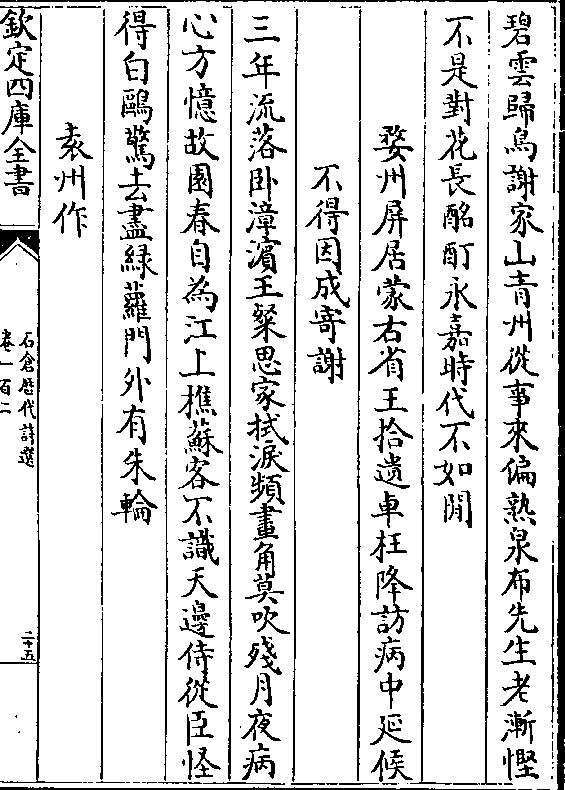 碧雲歸鳥謝家山青州從事來偏熟泉布先生老漸慳
不是對花長酩酊永嘉時代不如閒
婺州屏居蒙右省王拾遺車枉降訪病中延候
不得因成寄謝
三年流落卧漳濱王粲思家拭淚頻畫角莫吹殘月夜病
心方憶故園春自為江上樵蘇客不識天邊侍從臣怪
得白鷗驚去盡緑蘿門外有朱輪
袁州作
欽定四庫全書
石倉歴代詩選
卷一百二
二十五